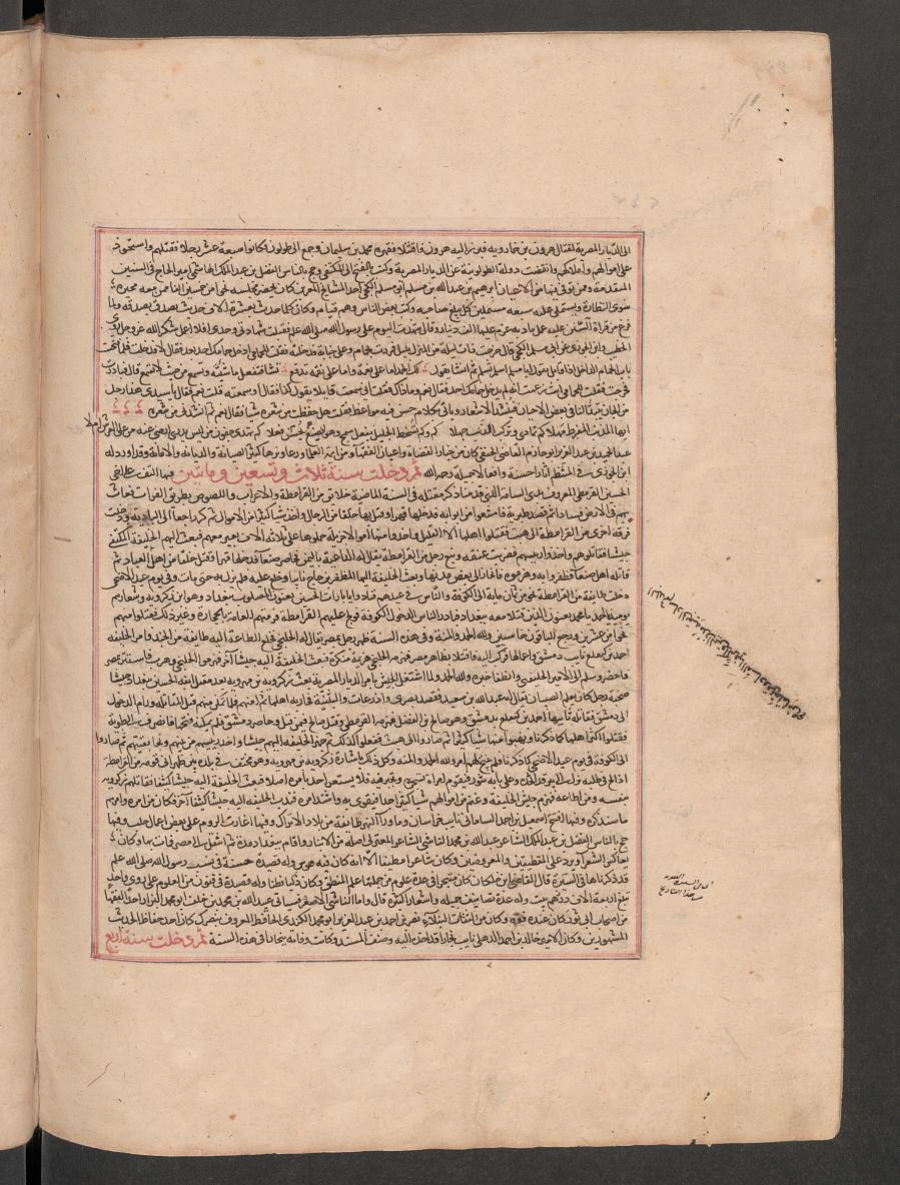 الى الديار المصرية لقتال هرون بن خمارويه فبرز اليه هرون فاقتتلا فقهره محمد بن سليمان وجمع ال طولون فكانوا سبعة عشر رجلا فقتلهم واستحوذ
على اموالهم واملاكهم وانقضت دولة الطولونية عن الديار المصرية وكتب بالفتح الى المكتفي وحج بالناس الفضل بن عبد الملك الهاشمي امير الحاج في السنين
المتقدمة وممن توفي فيها من الاعيان ابرهيم بن عبد الله بن مسلم ابو مسلم الكجي احد المشايخ المعمرين كان يحضر مجلسه نحو من خمسين الفا ممن معه محبرة
سوى النظارة ويستملي عليه سبعة مستملين كل يبلغ صاحبه وكتب بعض الناس وهم قيام وكان كلما حدث بعشرة الاف حديث تصدق بصدقة ولما
فرغ من قراة السنن عليه عمل مادبة غرم عليها الف دينار وقال شهدت اليوم على رسول الله صلى الله عليه فقبلت شهادتي وحدي افلا اعمل شكرا لله عز وجل
الخطيب وابن الجوزي عن ابي مسلم الكجي قال خرجت ذات ليلة من المنزل بليل فمررت بحمام وعلي جنابة فدخلته فقلت للحمامي ادخل حمامك احد بعد فقال لا فدخلت فلما فتحت
باب الحمام الداخل اذا قايل يقول ابا مسلم اسلم تسلم ثم انشا يقول لك الحمد اما على نعمة واما على نقمة تدفع تشاء فتفعل ما شئته وتسمع من حيث لا نسمع قال فبادرت
فخرجت فقلت للحمامي انت زعمت انه لم يدخل حمامك احد فقال نعم وما ذاك فقلت اني سمعت قايلا يقول كذا فقال اوسمعته قلت نعم فقال يا سيدي هذا رجل
من الجان يتبدا لنا في بعض الاحيان فينشد الاشعار وياتي بكلام حسن فيه مواعظ فقلت هل حفظت من شعره شيا فقال نعم ثم انشدني من شعره
ايها المذنب المفرط مهلا كم تمادى وتركب الذنب جهلا كم وكم تسخط الجليل بفعل سمج وهو يحسن الصنع فعلا كيف تهدى جفون من ليس يدري ارضي عنه من على العرش ام لا
عبد الحميد بن عبد العزيز ابو حازم القاضي الحنفي كان من خيار القضاة واعيان الفقهاء ومن ايمة العلماء ورعا ونزها كثير الصيانة والديانة والامانة وقد اورد له
ابن الجوزي في المنتظم اثارا حسنة وافعالا جميلة رحمه الله ثم دخلت سنة ثلاث وتسعين ومايتين فيها التف على اخي
الحسين القرمطي المعروف بذي الشامة الذي قدمنا ذكر مقتله في السنة الماضية خلايق من القرامطة والاعراب واللصوص بطريق الفرات فعاث
بهم في الارض فسادا ثم قصد طبرية فامتنعوا من ايوايه فدخلها قهرا وقتل بها خلقا من الرجال واخذ شيا كثيرا من الاموال ثم كر راجعا الى البادية ودخلت
فرقة اخرى من القرامطة الى هيت فقتلوا اهلها الا القليل واخذوا منها اموالا جزيلة حملوها على ثلاثة الاف بعير معهم فبعث اليهم الخليفة المكتفي
جيشا فقاتلوهم واخذوا رييسهم فضربت عنقه ونبغ رجل من القرامطة يقال له الداعية باليمن فحاصر صنعا فدخلها قهرا وقتل خلقا من اهلها ثم
قاتله اهل صنعا فظفروا به وهزموه فانحاز الى بعض مدنها وبعث الخليفة اليها المظفر بن حاج نايبا وخلع عليه فلم يزل به حتى مات وفي يوم عيد الاضحى
دخلت طايفة من القرامطة نحو من ثمان ماية الى الكوفة والناس في عيدهم فنادوا يا ثارات الحسين يعنون المصلوب ببغداد وهو ابن زكرويه وشعارهم
يوميذ يا احمد يا محمد يعنون الذين قتلا معه ببغداد فبادر الناس الدخول الكوفة فولج عليهم القرامطة فرمتهم العامة بالحجارة وغير ذلك فقتلوا منهم
نحوا من عشرين ورجع الباقون خاسيين ولله الحمد والمنة وفي هذه السنة ظهر رجل بمصر يقال له الخلنجي فخلع الطاعة اليه طايفة من الجند وامر الخليفة
احمد بن كيغلغ نايب دمشق واعمالها فركب اليه فاقتتلا بظاهر مصر فهزمه الخلنجي هزيمة منكرة فبعث الخليفة اليه جيشا اخر فهزموا الخلنجي وهرب فاستتر بمصر
فاحضر وسلم الى الامير الخليفتي وانطفا خبره ولله الحمد ولما اشتغل الجيش بامر الديار المصرية بعث زكرويه بن مهرويه بعد مقتل ابنه الحسين ببغداد جيشا
صحبة رجل كان يعلم الصبيان يقال له عبد الله بن سعيد فقصد بصرى واذرعات والبثنية فحاربه اهلها ثم امنهم فلما تمكن منهم قتل المقاتلة ورام الدخول
الى دمشق فقاتله نايبها احمد بن كيغلغ بدمشق وهو صالح بن الفضل فهزمه القرمطي وقتل صالح فيمن قتل وحاصر دمشق فلم يمكنه فتحها فانصرف الى طبرية
فقتلوا اكثر اهلها كما ذكرنا ونهبوا منها شيا كثيرا ثم صاروا الى هيت ففعلوا كذلك ثم جهز الخليفة اليهم جيشا واخذ رييسهم من بينهم ونجا بقيتهم ثم صاروا
الى الكوفة في يوم عيد الاضحى كما ذكرنا فلم ينج لهم امر ولله الحمد والمنة وكل ذلك باشارة زكرويه بن مهرويه وهو مختف في بلده بين ظهراني قومه من القرامطة
اذا لج في طلبه نزل الى بير قد اتخذه وعلى بابه تنور فتقوم امراة تسجره وتخبز فيه فلا يستعر احد بامره اصلا فبعث الخليفة اليه جيشا كثيفا فقاتلهم زكرويه
بنفسه ومن اطاعه فهزم جيش الخليفة وغنم من اموالهم شيا كثيرا جدا فتقوى به واشتد امره فندب الخليفة اليه جيشا كثيفا اخر فكان من امره وامرهم
ما سنذكره وفيها افتتح اسمعيل بن احمد الساماني نايب خراسان وما ورا النهر طايفة من بلاد الاتراك وفيها اغارت الروم على بعض اعمال حلب وفيها
حج بالناس الفضل بن عبد الملك الشاعر عبد الله بن محمد الناشي الشاعر المعتزلي اصله من الانبار واقام ببغداد مدة ثم انتقل الى مصر فمات بها وكان
يعاكس الشعرا ويرد على المنطقيين والعروضيين وكان شاعرا مطبقا الا انه كان فيه هوس وله قصيدة حسنة في نسب رسول الله صلى الله علم
قد ذكرناها في السيرة قال القاضي ابن خلكان كان متبحرا في عدة علوم من جملتها علم المنطق وكان ذكيا فطنا وله قصيدة في فنون من العلوم على روي واحد
تبلغ اربعة الاف وذكرهم بيت وله عدة تصانيف جميلة واشعار كثيرة قال واما الناشي الاصغر فسياتي عبد الله بن محمد بن خلف ابو محمد البزار احد الفقها
من اصحاب ابي ثور كان عنده فقه وكان من الثقات النبلاء نصر بن احمد بن عبد العزيز ابو محمد الكندي الحافظ المعروف بنصرك كان احد حفاظ الحديث
المشهورين وكان الامير خالد بن احمد الذهلي نايب بخارا قد اخذه اليه وصنف المسند وكانت وفاته ببخارا في هذه السنة ثم دخلت سنة اربع